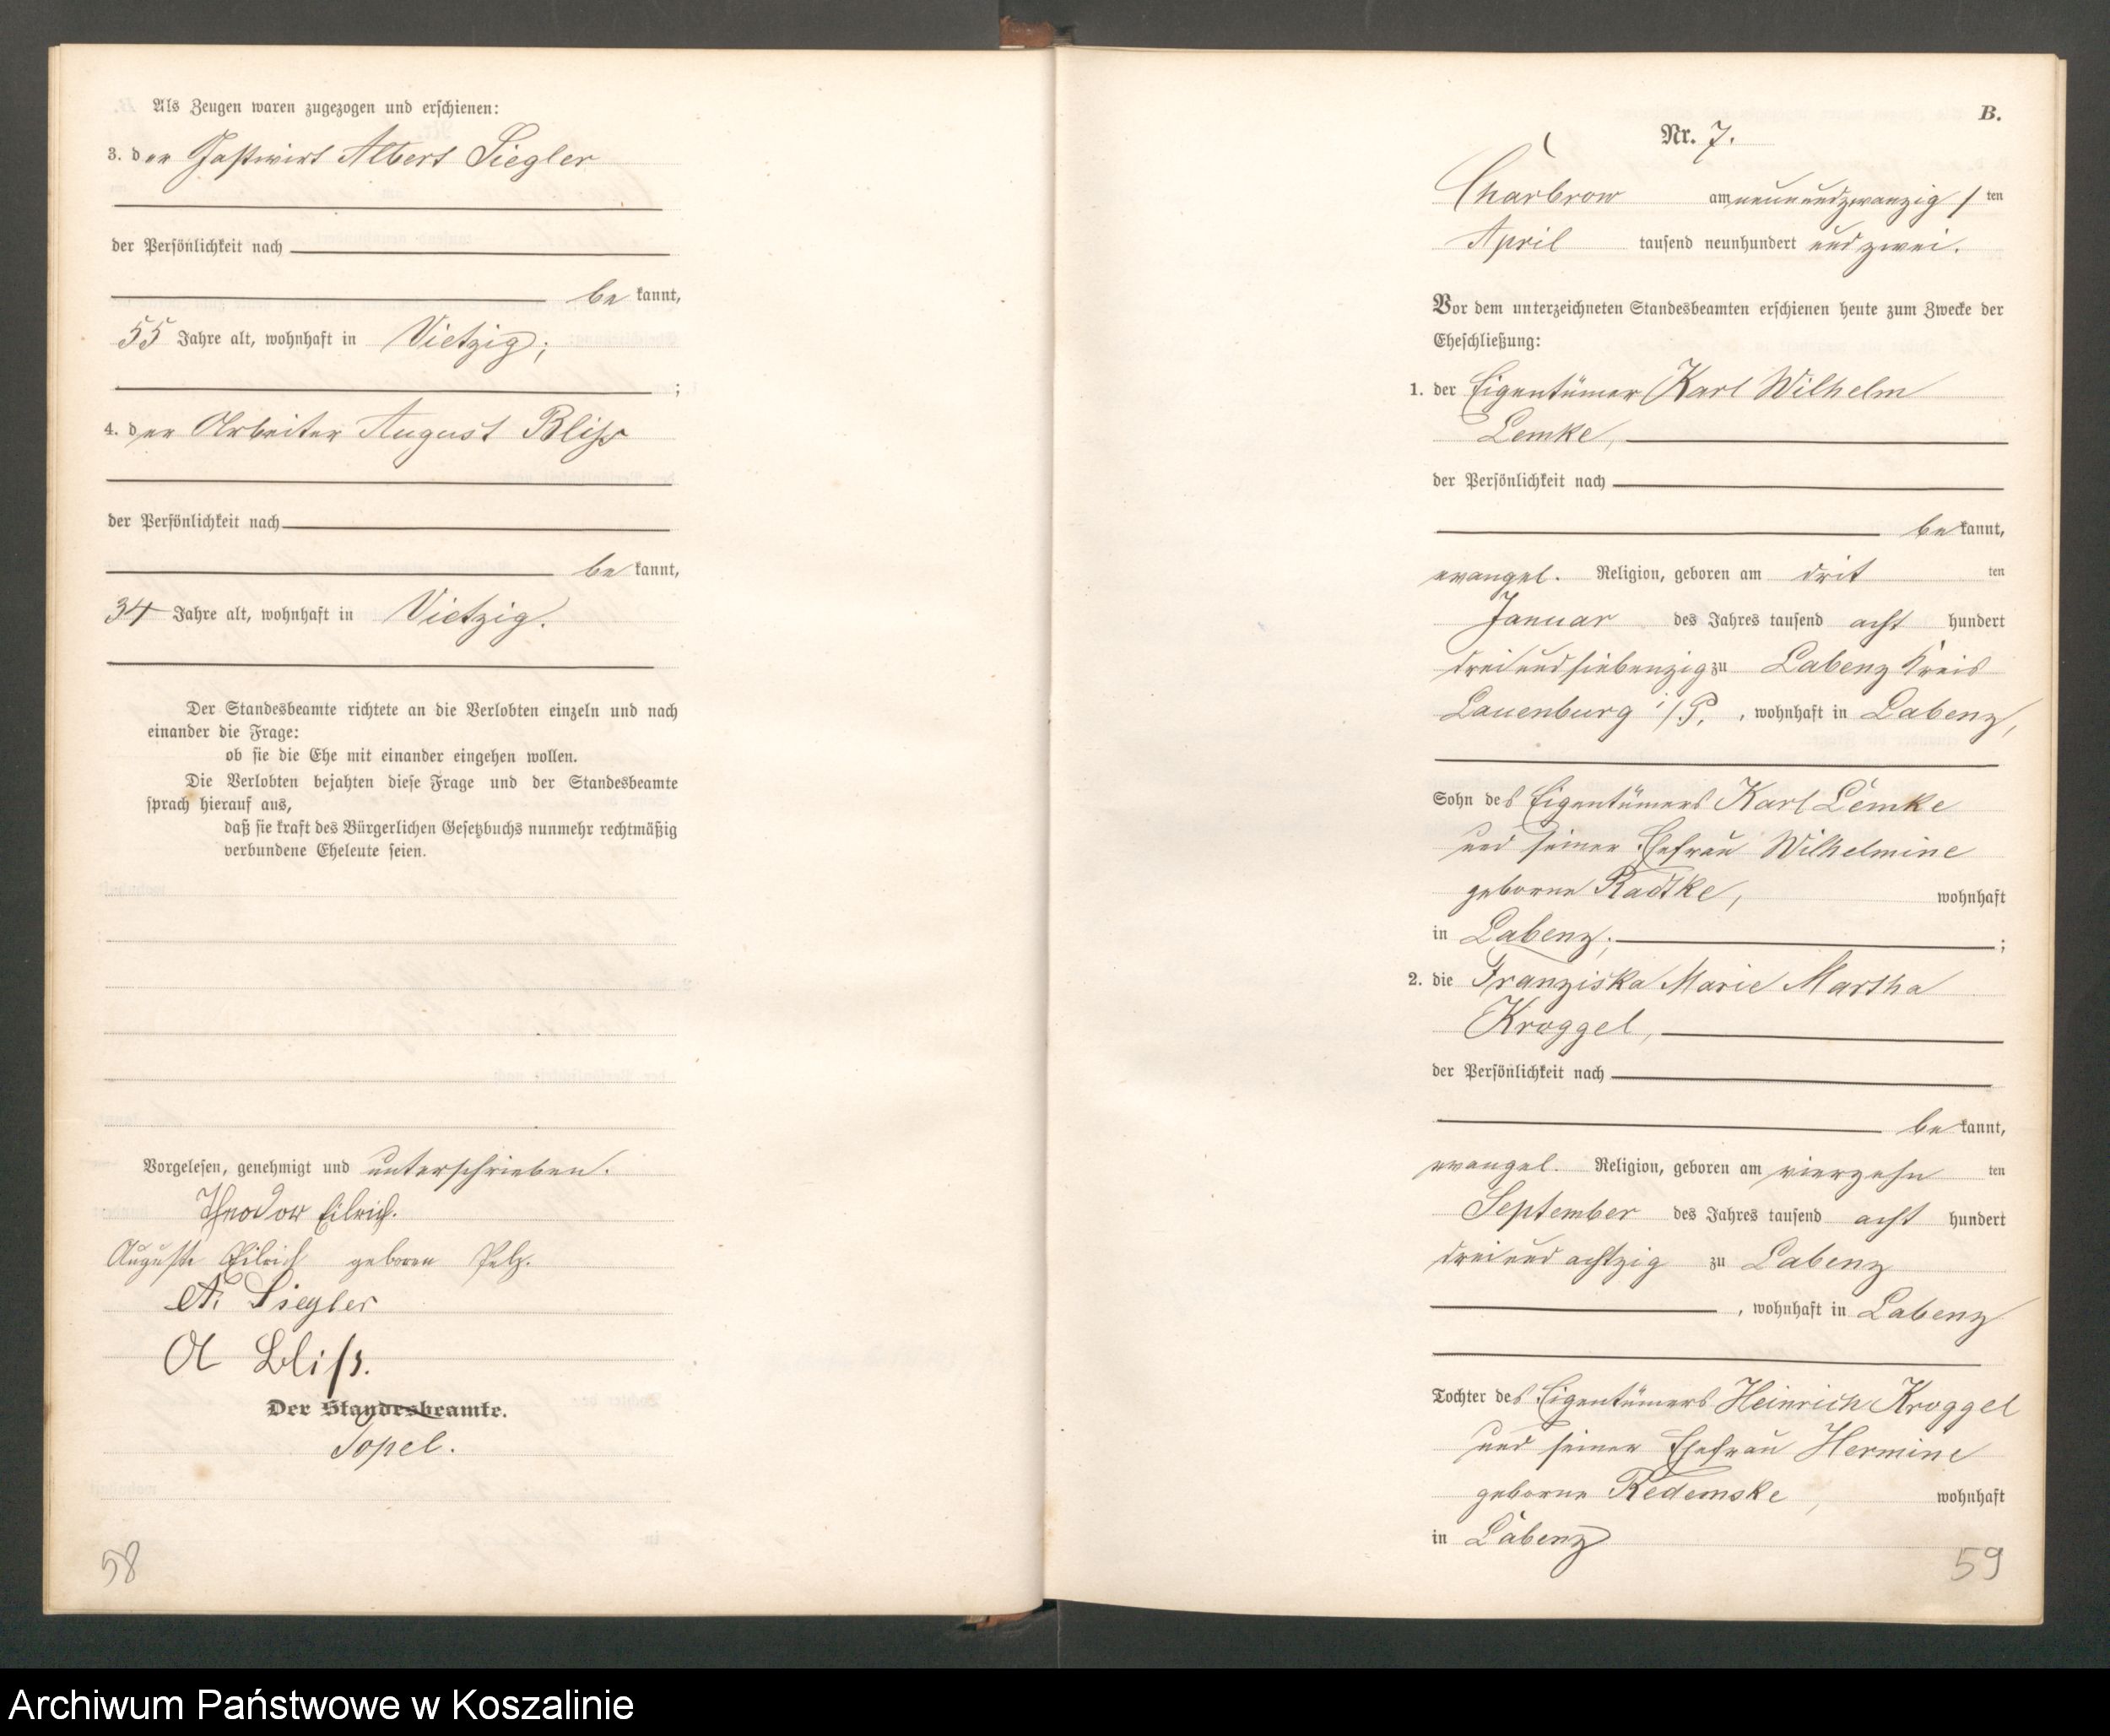 Als Zeugen waren zugezogen und erschienen:
3. der Gastwirt Albert Siegler
der Persönlichkeit nach
be kannt,
55 Jahre alt, wohnhaft in Vietzig;
;
4. der Arbeiter August Bliss
der Persönlichkeit nach
be kannt,
34 Jahre alt, wohnhaft in Vietzig.
Der Standesbeamte richtete an die Verlobten einzeln und nach
einander die Frage:
ob sie die Ehe mit einander eingehen wollen.
Die Verlobten bejahten diese Frage und der Standesbeamte
sprach hierauf aus,
daß sie kraft des Bürgerlichen Gesetzbuchs nunmehr rechtmäßig
verbundene Eheleute seien.
Vorgelesen, genehmigt und unterschrieben.
Theodor Eilrich.
Auguste Eilrich geboren Pelz.
A. Siegler
A Bliss.
Der Standesbeamte.
Topel.
58
B.
Nr. 7.
Charbrow am neunundzwanzig / ten
April tausend neunhundert und zwei.
Vor dem unterzeichneten Standesbeamten erschienen heute zum Zwecke der
Eheschließung:
1. der Eigentümer Karl Wilhelm
Lemke,
der Persönlichkeit nach
be kannt,
evangel. Religion, geboren am drit ten
Januar des Jahres tausend acht hundert
dreiundsiebenzig zu Labenz Kreis
Lauenburg i/P. , wohnhaft in Labenz,
Sohn des Eigentümers Karl Lemke
und seiner Ehefrau Wilhelmine
geborne Radtke, wohnhaft
in Labenz; ;
2. die Franziska Marie Martha
Kroggel,
der Persönlichkeit nach
be kannt,
evangel. Religion, geboren am vierzehn ten
September des Jahres tausend acht hundert
dreiundachtzig zu Labenz
, wohnhaft in Labenz
Tochter des Eigentümers Heinrich Kroggel
und seiner Ehefrau Hermine
geborne Redemske, wohnhaft
in Labenz
59
Archiwum Państwowe w Koszalinie